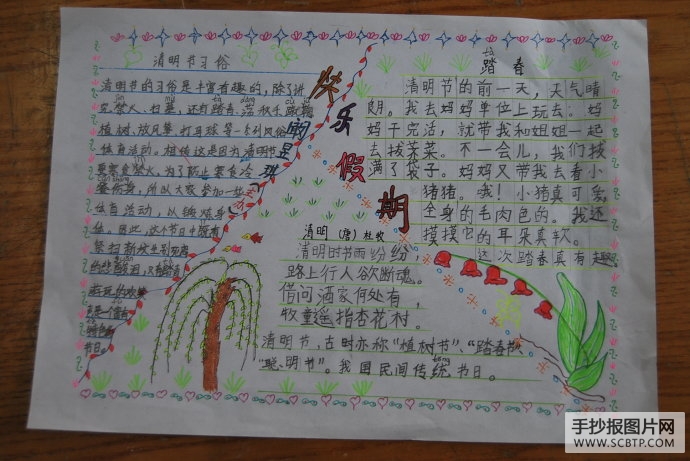 清明节习俗
清明节的习俗是丰富有趣的，除了讲
究禁火、扫墓，还有踏青、荡秋千、
植树、放风筝、打马球等一系列风俗
体育活动。相传这是因为清明节
要寒食禁火，为了防止寒食冷
餐伤身，所以大家参加一些
体育活动，以锻炼身
体。因此，这个节日中既有
祭扫新坟生别死离
的悲酸泪，又有踏青
游玩的欢笑
声，是一个富有
特色的
节日。
快乐假期
踏春
清明节的前一天，天气晴
朗，我去妈妈单位上玩去。妈
妈干完活，就带我和姐姐一起
去拔荠菜。不一会儿，我们拔
满了袋子。妈妈又带我去看小
猪猪。哦！小猪真可爱，
全身的毛肉色的。我还
摸摸它的耳朵真软。
这次踏春真有趣。
清明（唐）杜牧
清明时节雨纷纷，
路上行人欲断魂。
借问酒家何处有，
牧童遥指杏花村。
清明节，在时亦称“植树节”、“踏春节”
“聪明节”。我国民间传统节日。
手抄报图片网
WWW.SCBTP.COM